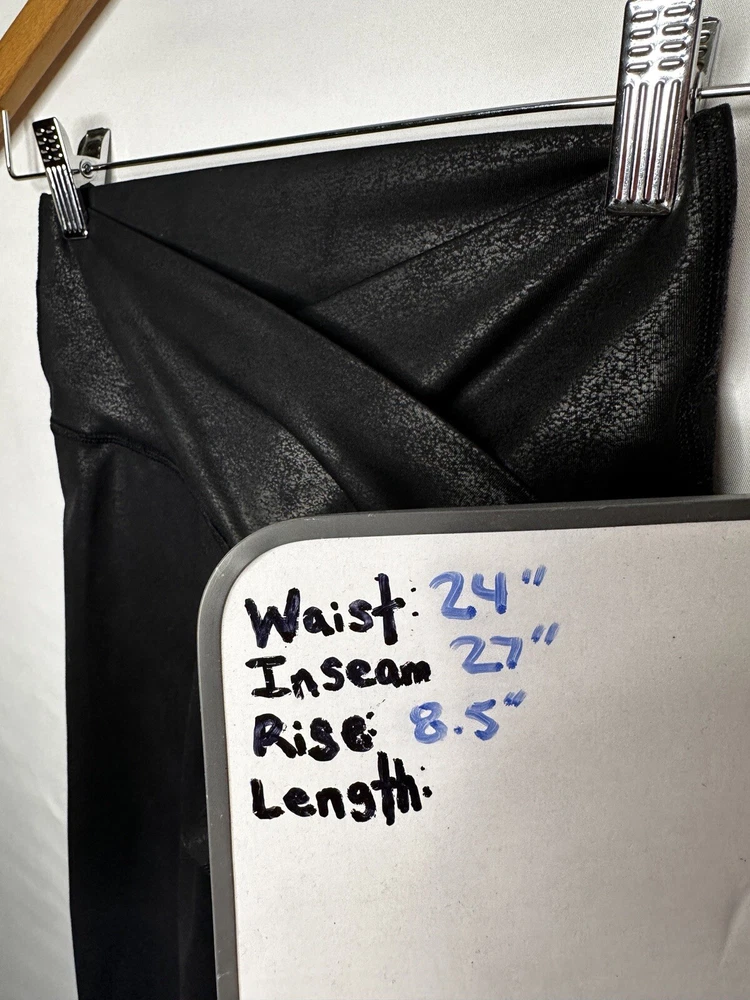 Waist: 24"
Inseam 27"
Rise: 8.5"
Length: